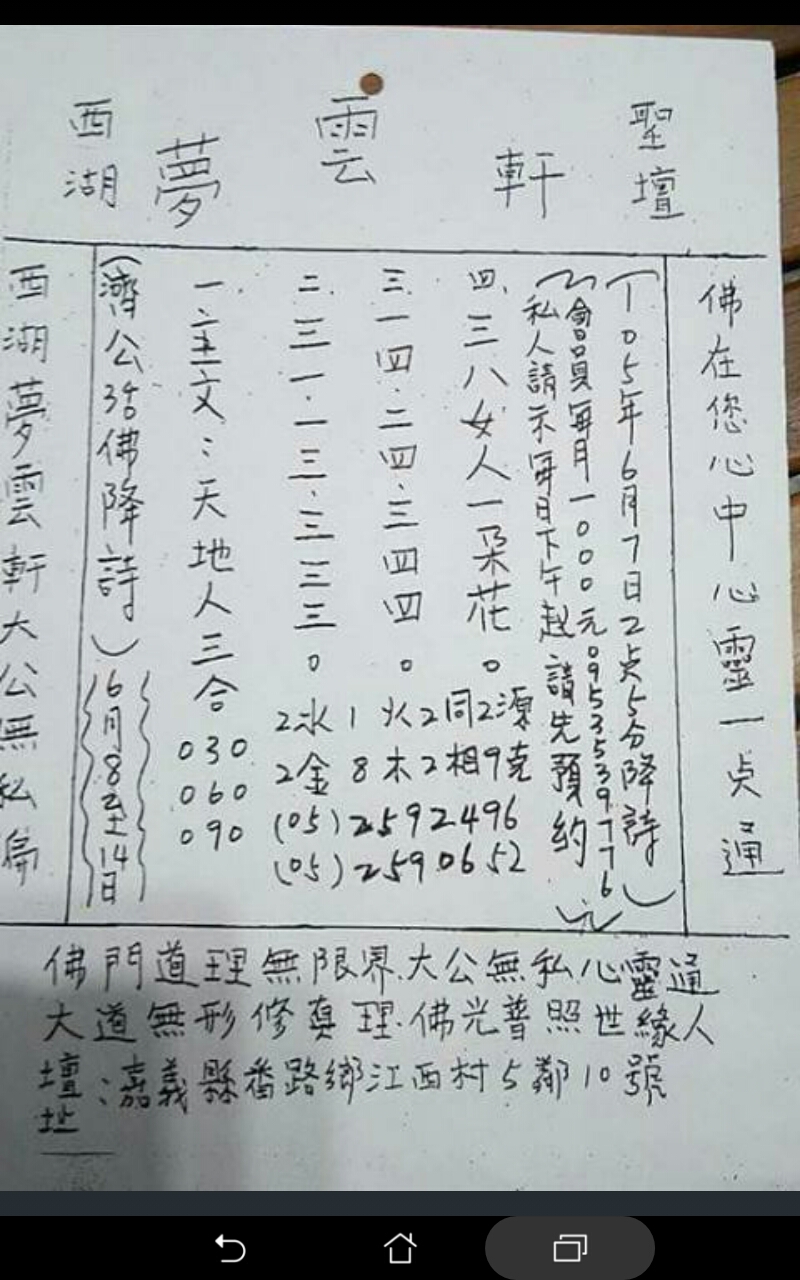 西湖 夢雲軒 聖壇
佛在您心中心靈一点通
(105年6月7日2点5分降詩)
會員每月一000元0953539776
私人請示每日下午起請先預約
四、三八女人一朵花。
三、一四.二四.三四四。
二、三一.一三.三三三。
一、主文:天地人三合
2水1火2同2源
2金8木2相9克
(05)2592496
(05)2590652
030
060
090
(濟公活佛降詩)
6月8至14日
西湖夢雲軒大公無私偏
佛門道理無限界.大公無私心靈通
大道無形修真理.佛光普照世緣人
壇址:嘉義縣番路鄉江西村5鄰10號